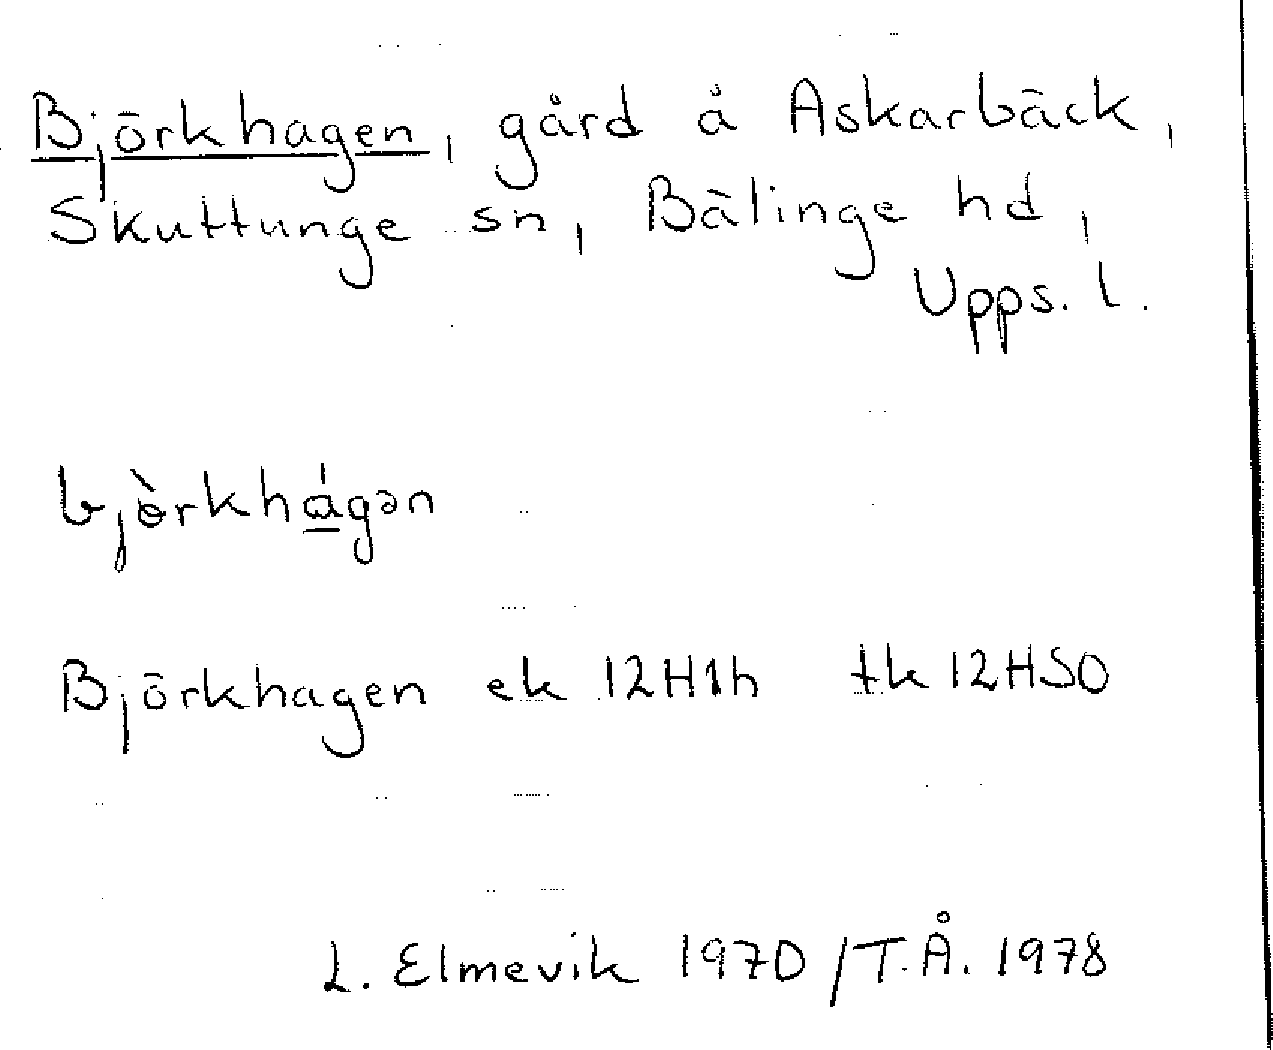 Björkhagen, gård å Askarbäck,
Skuttunge sn, Bälinge hd,
Upps. l.
bjö̀rkhágən
Björkhagen ek 12H1h tk 12HSO
L. Elmevik 1970/T.Å. 1978